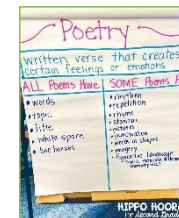 Poetry
written verse that creates
certain feelings or emotions
ALL Poems Have
SOME Poems H
• words
• topic
• title
• white space
• line breaks
• rhythm
• repetition
• rhyme
• stanzas
• punctuation
• words in shapes
• imagery
• figurative language
HIPPO HOORA
for Second Grade